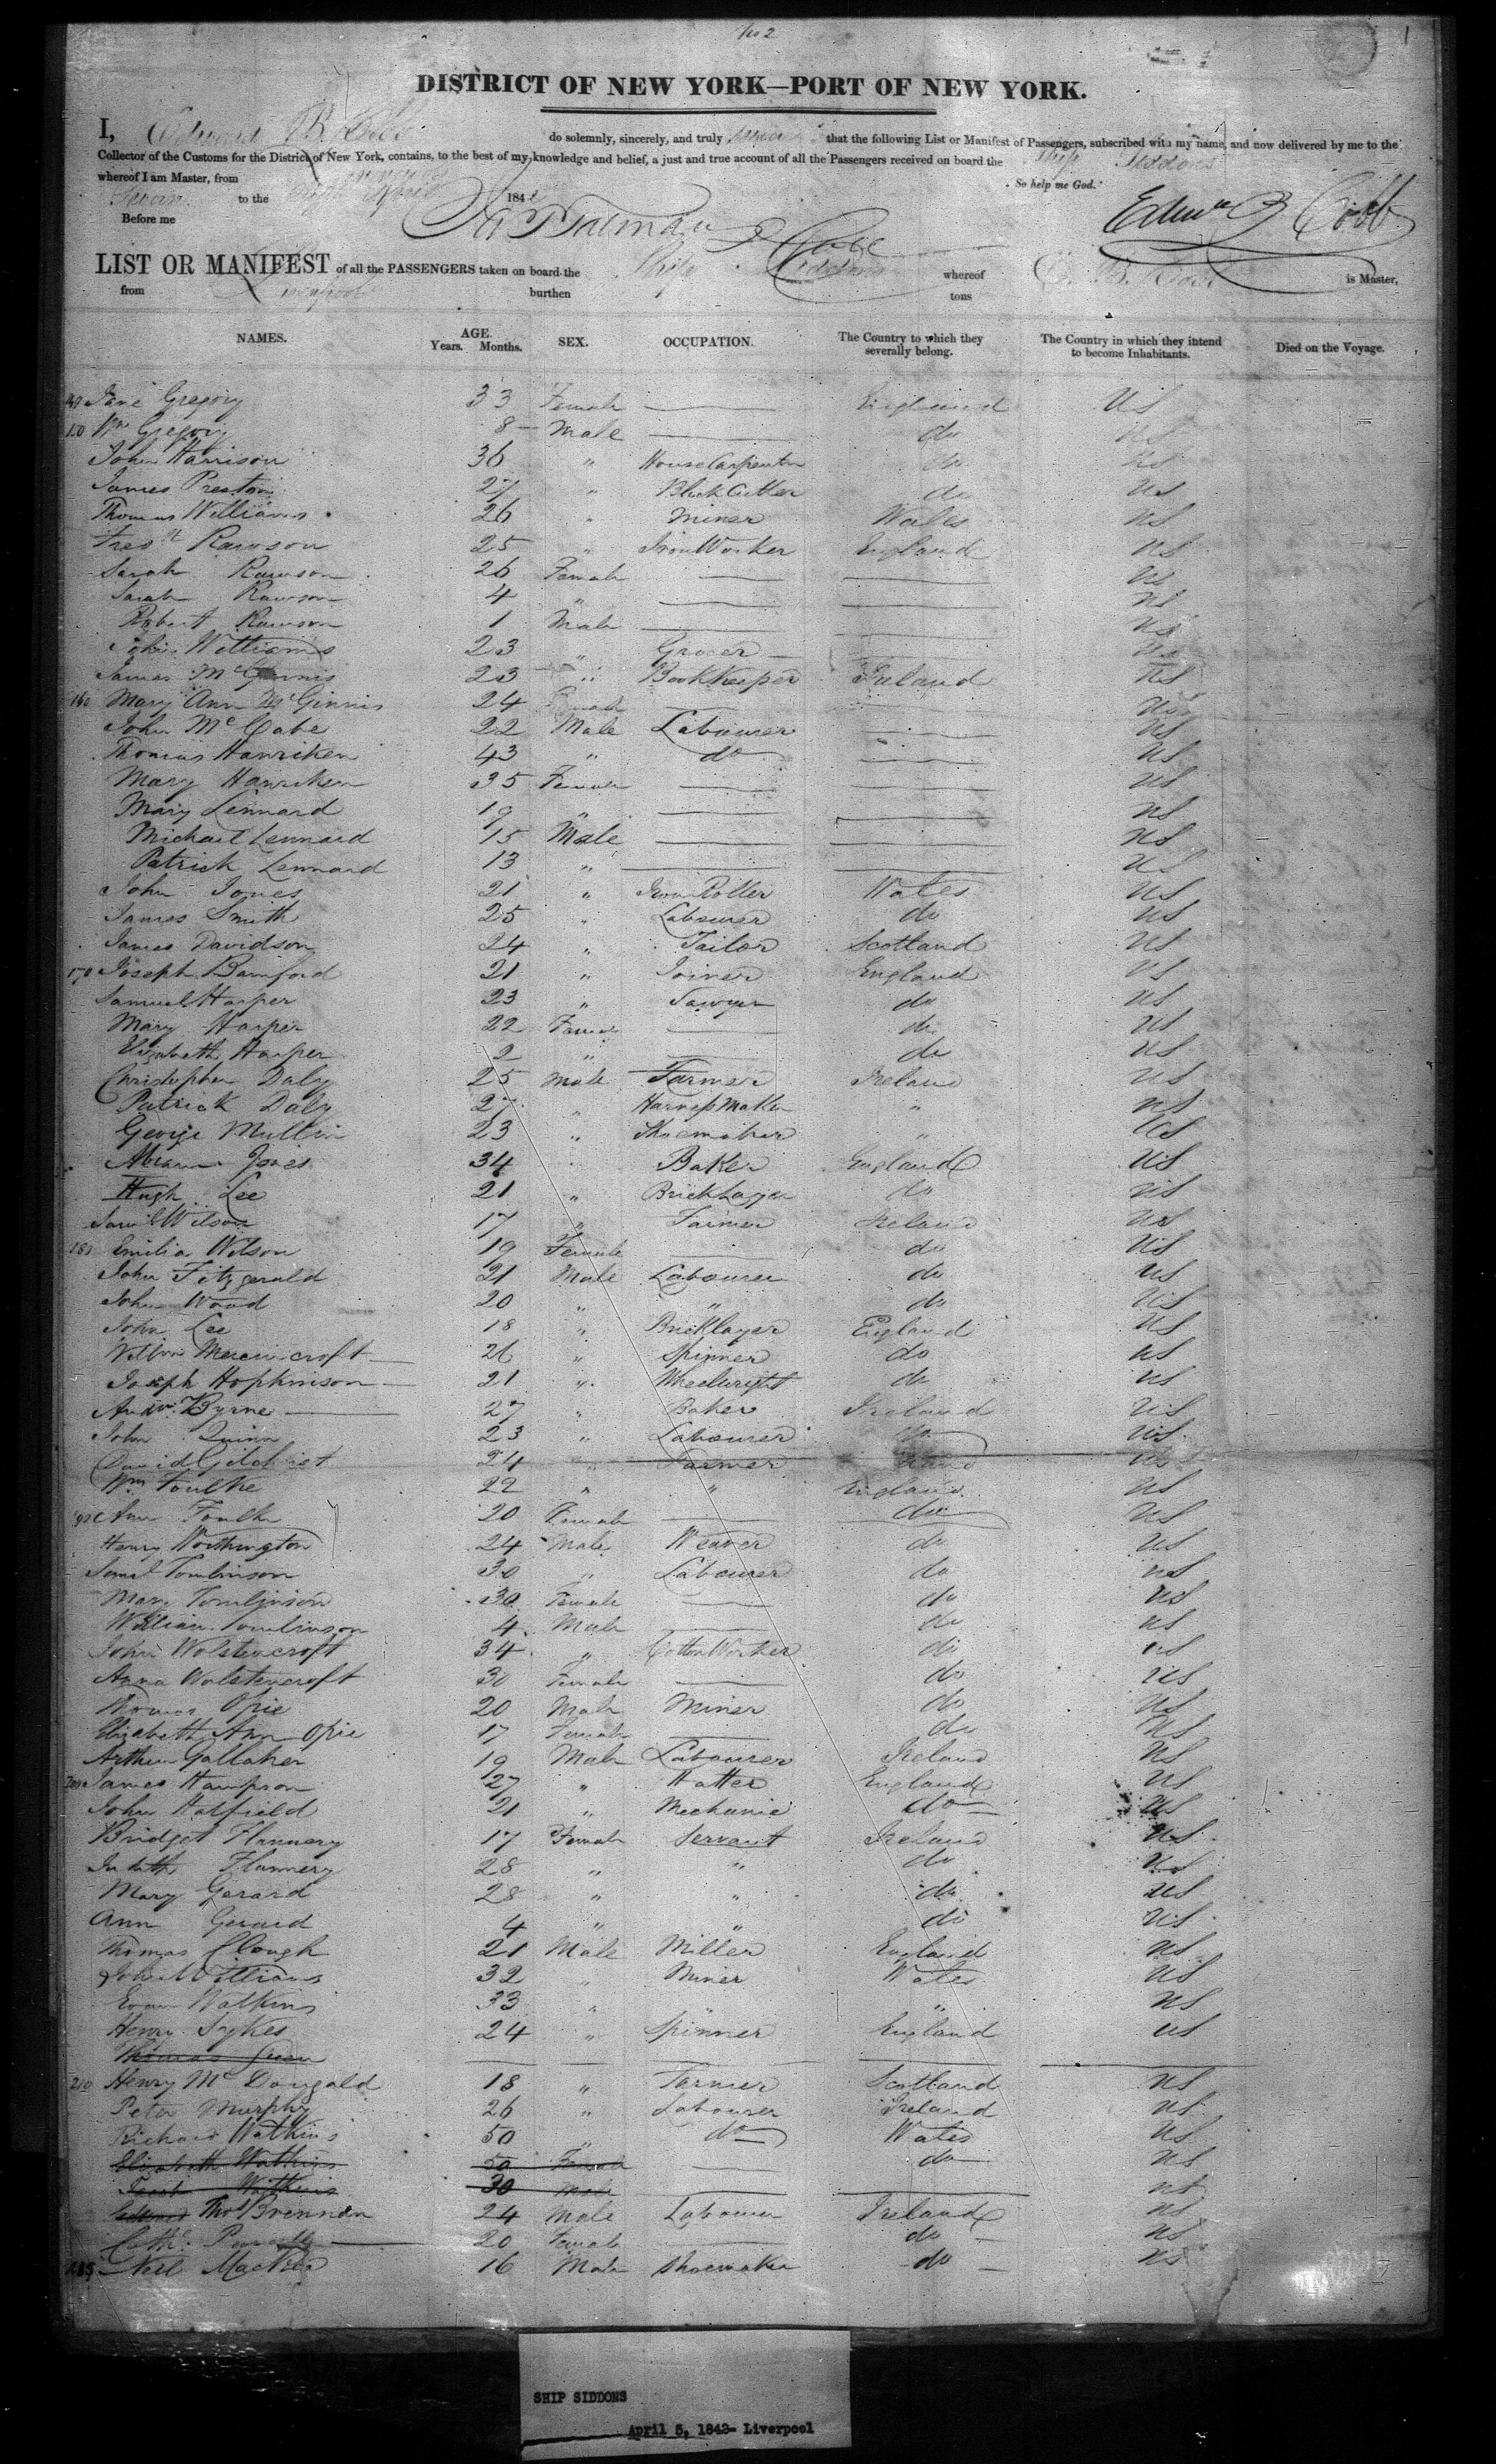 No 2
1
DISTRICT OF NEW YORK—PORT OF NEW YORK.
I, Edward B. Cobb do solemnly, sincerely, and truly swear that the following List or Manifest of Passengers, subscribed with my name, and now delivered by me to the
Collector of the Customs for the District of New York, contains, to the best of my knowledge and belief, a just and true account of all the Passengers received on board the Ship Siddons
whereof I am Master, from Liverpool So help me God.
Sworn to the April 184
Before me Edwd B Cobb
LIST OR MANIFEST of all the PASSENGERS taken on board the Ship Siddons whereof E. B. Cobb is Master,
from Liverpool burthen tons
NAMES. AGE Years. Months. SEX. OCCUPATION. The Country to which they severally belong. The Country in which they intend to become Inhabitants. Died on the Voyage.
Jane Gregory 33 Female England US
150 Wm Gregory 8 Male do US
John Harrison 36 " House Carpenter do US
James Preston 27 " Block Cutter do US
Thomas Williams 26 " Miner Wales US
Rawson 25 " Iron Worker England US
Sarah Rawson 26 Female US
Sarah Rawson 4 " US
Robert Rawson 1 Male US
John Williams 23 " Grocer US
James McGinnis 23 " Book Keeper Ireland US
160 Mary Ann McGinnis 24 Female US
John McCabe 22 Male Labourer US
Thomas Hanriken 43 " do US
Mary Hanriken 35 Female US
Mary Lennard 19 " US
Michael Lennard 15 Male US
Patrick Lennard 13 " US
John Jones 21 " Iron Roller Wales US
James Smith 25 " Labourer do US
James Davidson 24 " Tailor Scotland US
170 Joseph Bamford 21 " Joiner England US
Samuel Harper 23 " Sawyer do US
Mary Harper 22 Female do US
Elizabeth Harper 2 " do US
Christopher Daly 25 Male Farmer Ireland US
Patrick Daly 27 " Harness Maker " US
George Mullin 23 " Shoemaker " US
Abram Jones 34 " Baker England US
Hugh Lee 21 " Brick Layer do US
Saml Wilson 17 " Farmer Ireland US
180 Emilia Wilson 19 Female do US
John Fitzgerald 21 Male Labourer do US
John Wood 20 " " do US
John Lee 18 " Bricklayer England US
26 " Spinner do US
Joseph Hopkinson 21 " Wheelwright do US
Andw. Byrne 27 " Baker Ireland US
John Quinn 23 " Labourer do US
David Gilchrist 24 " Farmer US
Wm Foulke 22 " " England US
190 Ann Foulke 20 Female do US
Henry Worthington 24 Male Weaver do US
Saml Tomlinson 30 " Labourer do US
Mary Tomlinson 30 Female do US
William Tomlinson 4 Male do US
John Wolstencroft 34 " Cotton Worker do US
Anna Wolstencroft 30 Female do US
Thomas Opie 20 Male Miner do US
Elizabeth Ann Opie 17 Female do US
Arthur Gallaher 19 Male Labourer Ireland US
200 James Hampson 27 " Hatter England US
John Hatfield 21 " Mechanic do US
Bridget Flannery 17 Female Servant Ireland US
Judith Flannery 28 " " do US
Mary Gerard 28 " " do US
Ann Gerard 4 " " do US
Thomas Clough 21 Male Miller England US
John Williams 32 " Miner Wales US
Evan Watkins 33 " " " US
Henry Sykes 24 " Spinner England US
Thomas
210 Henry McDougald 18 " Farmer Scotland US
Peter Murphy 26 " Labourer Ireland US
Richard Watkins 50 " do Wales US
Elizabeth Watkins 50 Female do US
Watkins 30 Male US
Thos Brennan 24 Male Labourer Ireland US
Cathe 20 Female do US
215 Neil 16 Male Shoemaker do US
SHIP SIDDONS
April 5, 1842- Liverpool